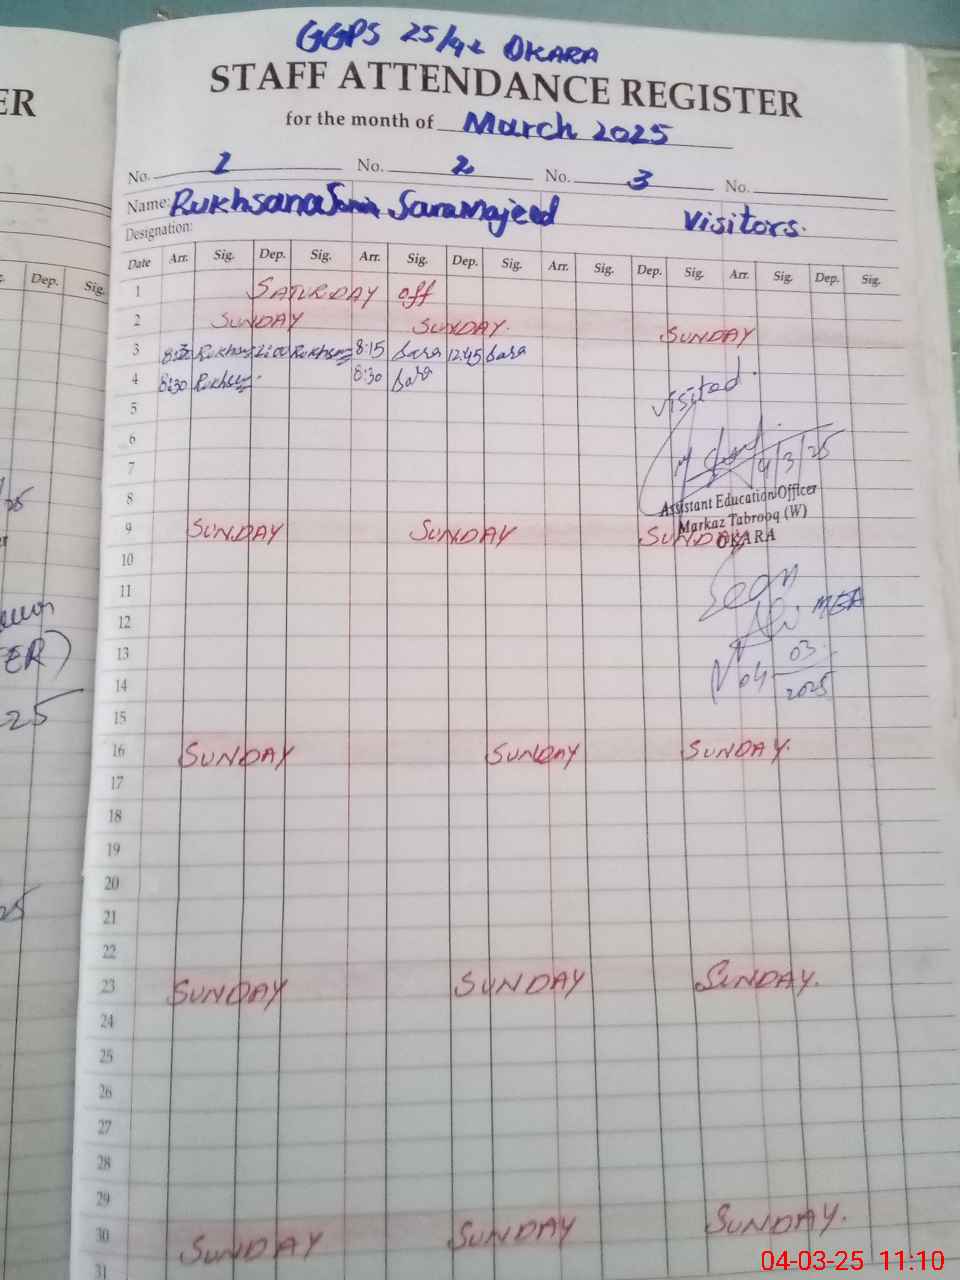 ER
Dep. Sig.
ER)
25
GGPS 25/4L OKARA
STAFF ATTENDANCE REGISTER
for the month of March 2025
No. 1 No. 2 No. 3 No.
Name: Rukhsana Sara Majeed Visitors.
Designation:
Date Arr. Sig. Dep. Sig. Arr. Sig. Dep. Sig. Arr. Sig. Dep. Sig. Arr. Sig. Dep. Sig.
1 SATURDAY off
2 SUNDAY SUNDAY. SUNDAY
3 8:30 Rukhsana 8:15 Sara 12:45 Sara
4 8:30 8:30 Sara
visited.
5
6
7 4/3/25
8 Assistant Education Officer
Markaz Tabrooq (W)
9 SUNDAY SUNDAY SUNDAY
OKARA
10
11
12 MEA
13 03
14 04 2025
15
16 SUNDAY SUNDAY SUNDAY.
17
18
19
20
21
22
23 SUNDAY SUNDAY SUNDAY.
24
25
26
27
28
29
30 SUNDAY SUNDAY SUNDAY.
31
04-03-25 11:10